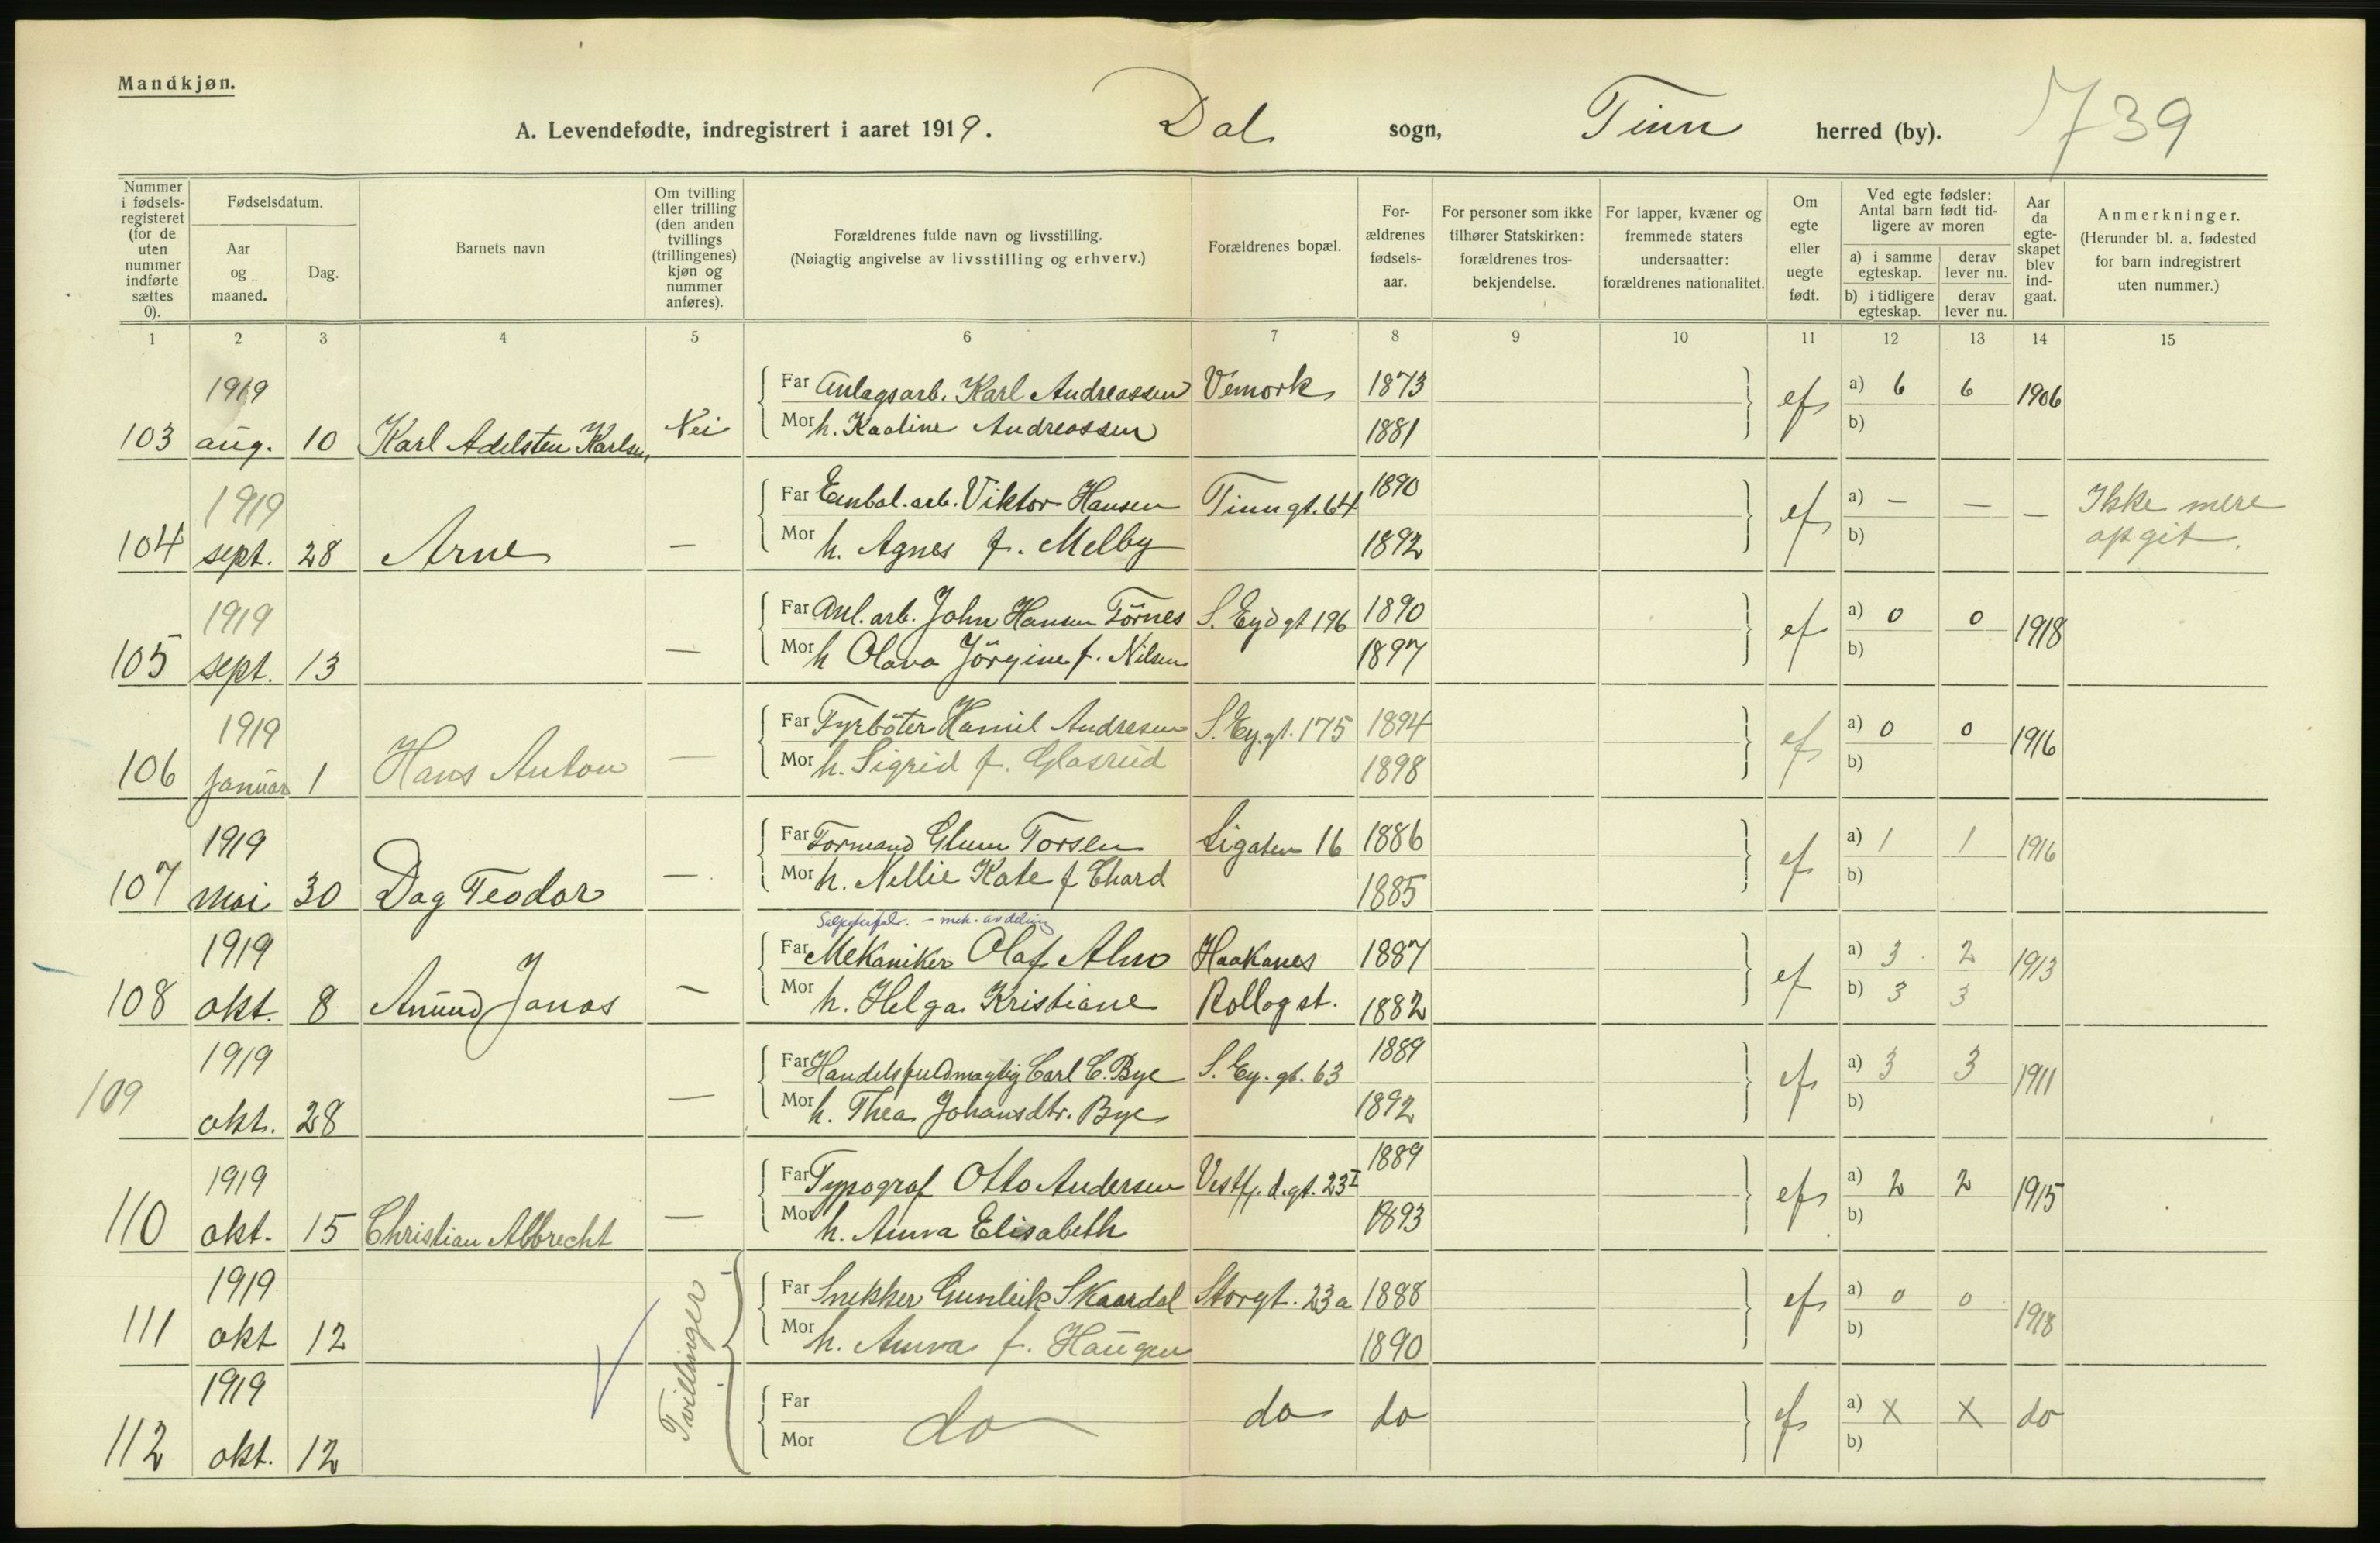 Mandkjøn.
A. Levendefødte, indregistrert i aaret 1919. Dal sogn, Tinn herred (by). 739
Nummer i fødsels-registeret (for de uten nummer indførte sættes 0).
Fødselsdatum.
Aar og maaned.
Dag.
Barnets navn
Om tvilling eller trilling (den anden tvillings (trillingenes) kjøn og nummer anføres).
Forældrenes fulde navn og livsstilling.
(Nøiagtig angivelse av livsstilling og erhverv.)
Forældrenes bopæl.
For-ældrenes fødsels-aar.
For personer som ikke tilhører Statskirken: forældrenes tros-bekjendelse.
For lapper, kvæner og fremmede staters undersaatter: forældrenes nationalitet.
Om egte eller uegte født.
Ved egte fødsler: Antal barn født tid-ligere av moren
a) i samme egteskap. derav lever nu.
b) i tidligere egteskap. derav lever nu.
Aar da egte-skapet blev ind-gaat.
Anmerkninger.
(Herunder bl. a. fødested for barn indregistrert uten nummer.)
1 2 3 4 5 6 7 8 9 10 11 12 13 14 15
1919 Far Anlagsarb. Karl Andreassen Vemork 1873 ef a) 6 6 1906
103 aug. 10 Karl Adelsten Karlsen Nei Mor h. Kaoline Andreassen 1881 b)
1919 Far Embal. arb. Viktor Hansen Tinngt. 64 1890 ef a) – — — Ikke mere
104 sept. 28 Arne — Mor h. Agnes f. Melby 1892 b) opgit.
1919 Far Anl. arb. John Hansen Törnes S. Eydgt 196 1890 ef a) 0 0 1918
105 sept. 13 — Mor h Olava Jörgine f. Nilsen 1897 b)
1919 Far Fyrböter Hamil Andresen S. Ey. gt. 175 1894 ef a) 0 0 1916
106 Januar 1 Hans Anton — Mor h. Sigrid f. Glasrud 1898 b)
1919 Far Formand Glum Torsen Ligaten 16 1886 ef a) 1 1 1916
107 Mai 30 Dag Teodor — Mor h. Nellie Kate f Chard 1885 b)
– mek. avdeling
1919 Far Mekaniker Olaf Almo Haakanes 1887 ef a) 3 2 1913
108 okt. 8 Amund Jonas – Mor h. Helga Kristiane Rollag st. 1882 b) 3 3
1919 Far Handelsfuldmægtig Carl C. Bye S. Ey. gt. 63 1889 ef a) 3 3 1911
109 okt. 28 — Mor h. Thea Johansdtr. Bye 1892 b)
1919 Far Typograf Otto Andersen Vestfj. d. gt. 23 I 1889 ef a) 2 2 1915
110 okt. 15 Christian Albrecht — Mor h. Anna Elisabeth 1893 b)
1919 Tvillinger Far Snekker Gunleik Skaardal Storgt. 23 a 1888 ef a) 0 0 1918
111 okt 12 Mor h. Anna f. Haugen 1890 b)
1919 Far do do do ef a) x x do
112 okt. 12 Mor b)